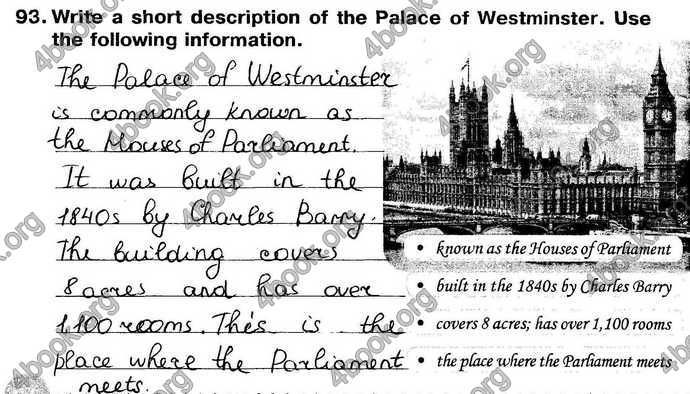 93. Write a short description of the Palace of Westminster. Use
the following information.
The Palace of Westminster
is commonly known as
the Houses of Parliament.
It was built in the
1840s by Charles Barry.
The building covers
8 acres and has over
1,100 rooms. Thés is the
place where the Parliament
meets.
• known as the Houses of Parliament
• built in the 1840s by Charles Barry
• covers 8 acres; has over 1,100 rooms
• the place where the Parliament meets
4book.org
4book.org
4book.org
4book.org
4book.org
4book.org
4book.org
4book.org